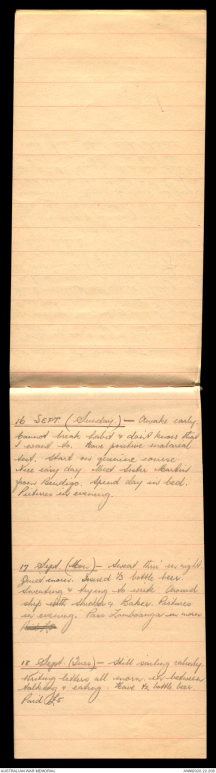 16 SEPT. (Sunday) — Awake early.
Cannot break habit & don't know that
I want to. Have positive malarial
test. Start on quinine course.
Nice easy day. Meet Sister Martin
from Bendigo. Spend day in bed.
Pictures in evening.
17 Sept. (Mon.) — Sweat thru in night.
Issued ½ bottle beer.
Sweating & trying to write. Around
ship with & Baker. Pictures
in evening. Pass Zamboanga in morn.
18 Sept. (Tues) — Still sailing calmly.
Writing letters all morn. in between
talking & eating. Have ½ bottle beer.
Paid £5
AUSTRALIAN WAR MEMORIAL